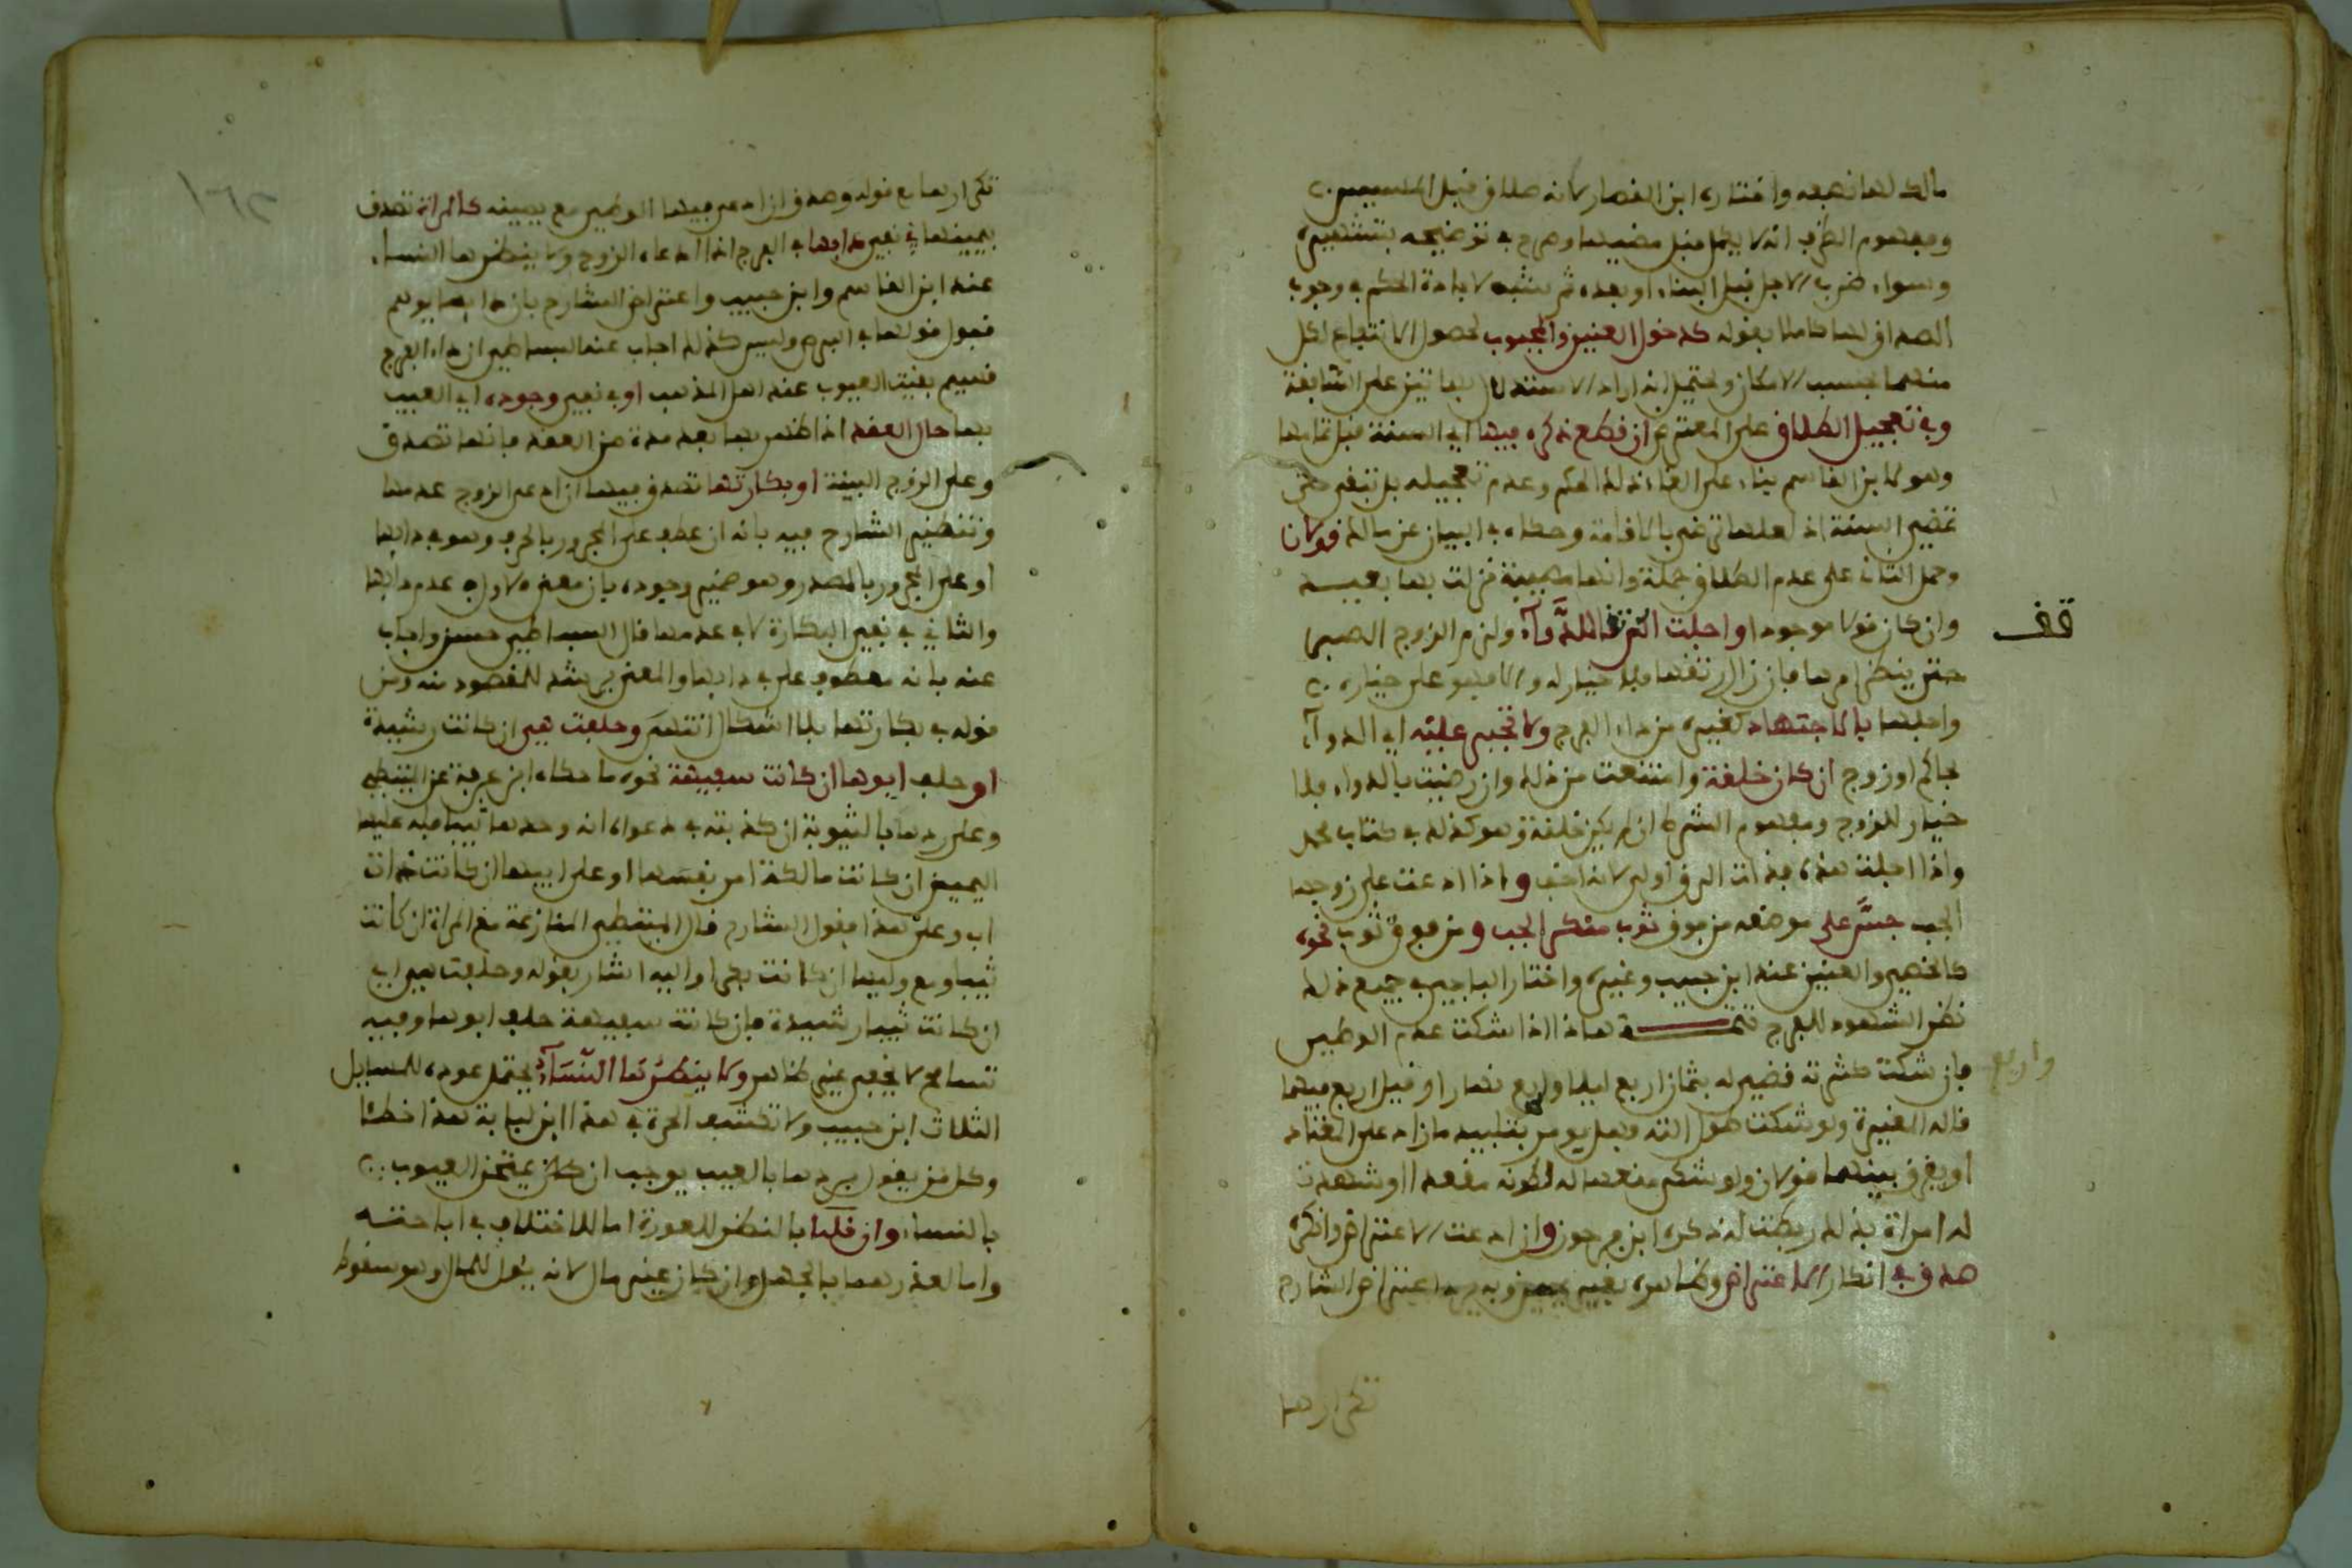 مالك لها نصفه واختاره ابن القصار لانه طلاق قبل المسيس
ومفهوم الظرف انه لا يكمل قبل مضيها وصرح في توضيحه بتشهيره
وسواء ضرب الاجل قبل البناء او بعده ثم شبه لافادة الحكم في وجوب
الصداق لها كاملا بقوله كدخول العنين والمجبوب لحصول الانتفاع لكل
منهما بحسب الامكان ويحتمل انه اراد الاستدلال بهاتين على السابقة
وفي تعجيل الطلاق على المعترض ان قطع ذكره فيها اي السنة قبل تمامها
وهو لابن القاسم بناء على الغاء ذلك الحكم وعدم تعجيله بل تبقى حتى
تمضي السنة اذ لعلها ترضى بالاقامة وحكاه في البيان عن مالك قولان
وحمل الثاني على عدم الطلاق جملة وانها مصيبة نزلت بها بعيسه
وان كان قولا موجودا واجلت الرتقاء للدواء ولزم الزوج الصبر
حتى ينظر امرها فان زال رتقها فلا خيار له والا فهو على خياره
واجلها بالاجتهاد كغيره من داء الفرج ولا تجبر عليه اي الدواء
لحاكم او زوج ان كان خلقة وامتنعت من ذلك وان رضيت بالدواء فلا
خيار للزوج ومفهوم الشرط ان لم يكن خلقة وهو كذلك في كتاب محمد
واذا اجلت هذه فذات الرق اولى لانه اخف واذا ادعت على زوجها
الجب جس على موضعه من فوق ثوب منكر الجب ومن فوق ثوب نحوه
كالخصي والعنين عند ابن حبيب وغيره واختار الباجي في جميع ذلك
نظر الشهود للفرج تتمة هذا اذا شكت عدم الوطئ
فان شكت كثرته قضي له بثمان اربع ليلا واربع نهارا وقيل اربع فيهما
قاله المغيرة ولو شكت طول الته فهل يومر بتلييه ما زاد على المعتاد
او يفرق بينهما قولان ولو شكى منعها له لكونه مقعدا او شهدت
له امراة بذلك ربطت له ذكره ابن فرحون وان ادعت الاعتراض وانكره
صدق في انكار الاعتراض وظاهره بغير يمين وبه اعتراض الشارح
قف
واربع
تكرارها
تكرارها مع قوله وصدق ان ادعى فيها الوطئ مع يمينه كالمراة تصدق
بيمينها في نفي دائها في الفرج اذا ادعاه الزوج ولا ينظرها النساء
عند ابن القاسم وابن حبيب واعترض الشارح بان دائها يوهم
قبول قولها في البرص وليس كذلك اجاب عنه البساطي ان داء الفرج
قسيم بقية العيوب عند اهل المذهب او في نفي وجوده اي العيب
بها حال العقد اذا ظهر بها بعد مدة من العقد فانها تصدق
وعلى الزوج البينة او بكارتها تصدق فيها ان ادعى الزوج عدمها
وتنظير الشارح فيه بانه ان عطف على المجرور بالحرف وهو في دائها
او على المجرور بالمصدر وهو ضمير وجوده بان معنى الاول في عدم دائها
والثاني في نفي البكارة لا في عدمها قال البساطي حسن واجاب
عنه بانه معطوف على في دائها والمعنى يرشد للمقصود منه ومن
قوله في بكارتها بلا اشكال انتهى وحلفت هي ان كانت رشيدة
او حلف ابوها ان كانت سفيهة نحوه ما حكاه ابن عرفة عن المتيطي
وعلى ردها بالثيوبة ان كذبته في دعواه انه وجدها ثيبا فله عليها
اليمين ان كانت مالكة امر نفسها او على ابيها ان كانت ذات
اب وعلى هذا فقول الشارح قال المتيطي المنازعة مع المراة ان كانت
ثيبا ومع وليها ان كانت بكرا واليه اشار بقوله وحلفت هي اي
ان كانت ثيبا رشيدة فان كانت سفيهة حلف ابوها وفيه
تسامح لا يخفى غير ظاهر ولا ينظرها النساء يحتمل عوده للمسايل
الثلاث ابن حبيب ولا تكشف الحرة في هذا ابن لبابة هذا خطا
وكل من يقول يردها بالعيب يوجب ان كان يمتحن العيوب
بالنساء وان قلنا بالنظر للعورة اما للاختلاف في اباحته
واما لعذرهما بالجهل وان كان غير مال لانه يئول للمال وهو سقوط
١٦٢